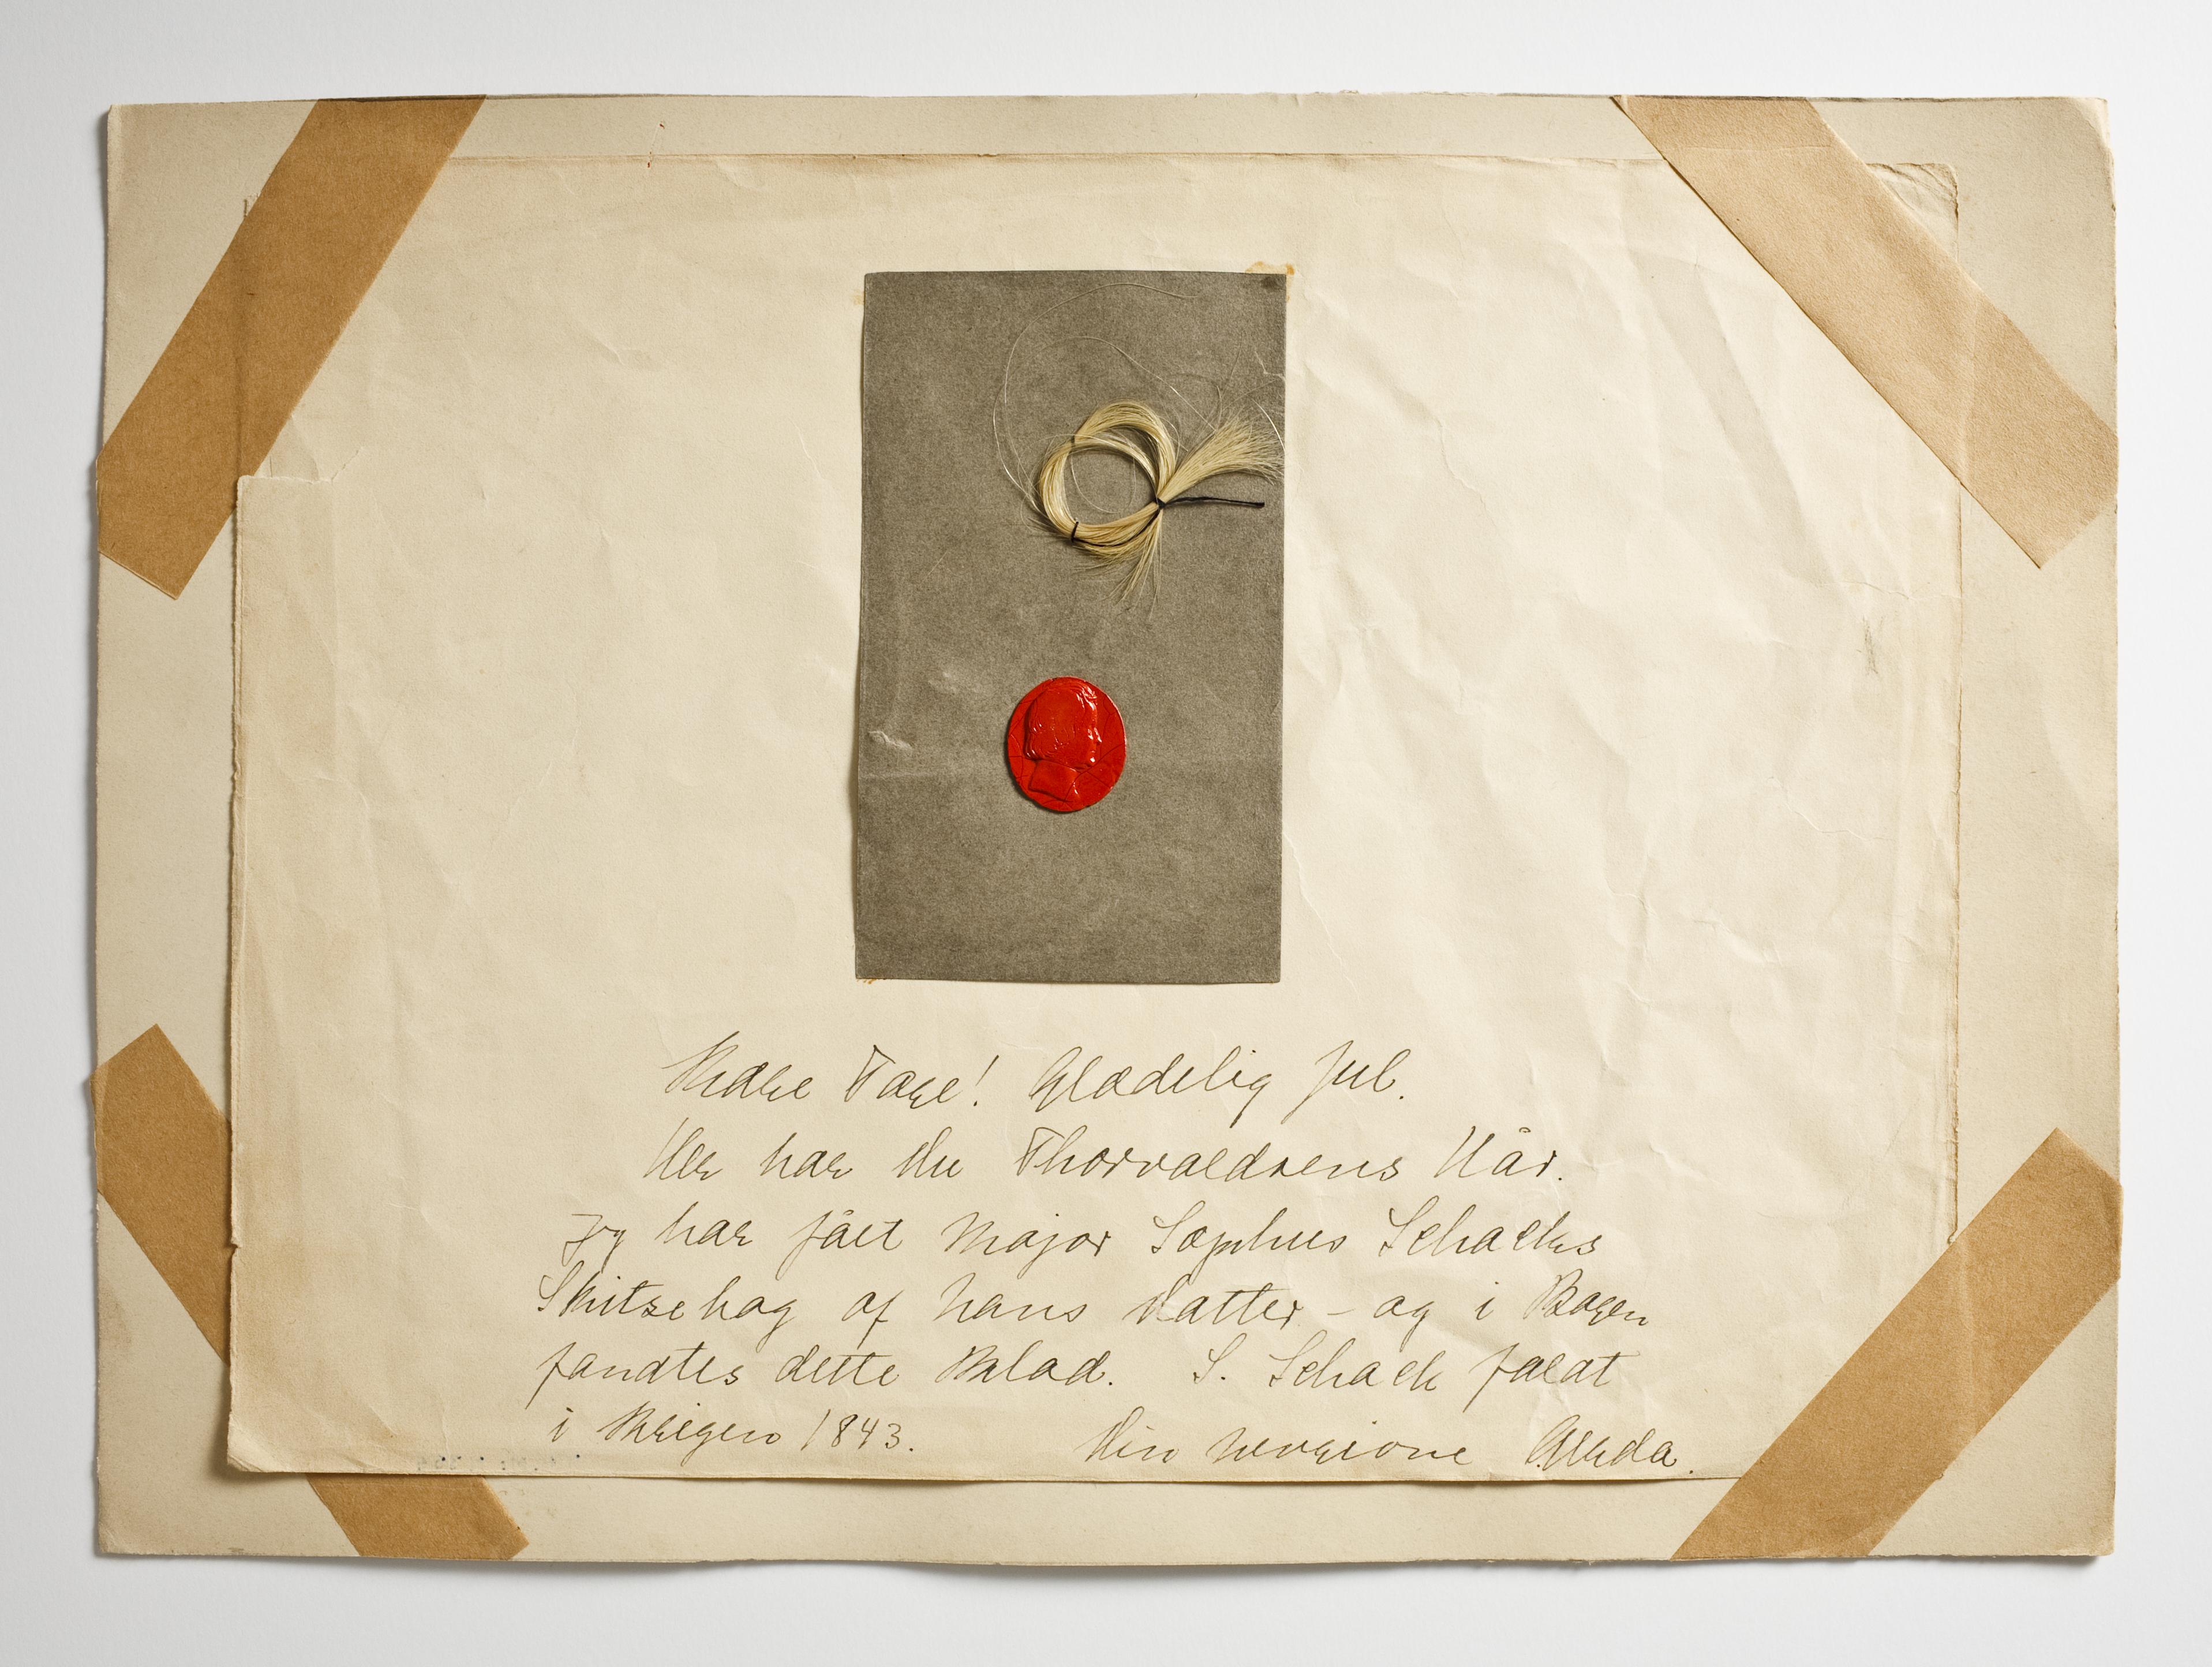 Kære Tage! Glædelig Jul.
Her har Du Thorvaldsens Hår.
Jeg har fået Major Sophus Schacks
Skitsebog af hans Datter – og i Bogen
fandtes dette Blad. S. Schack faldt
i Krigen 1843.
Din hengivne